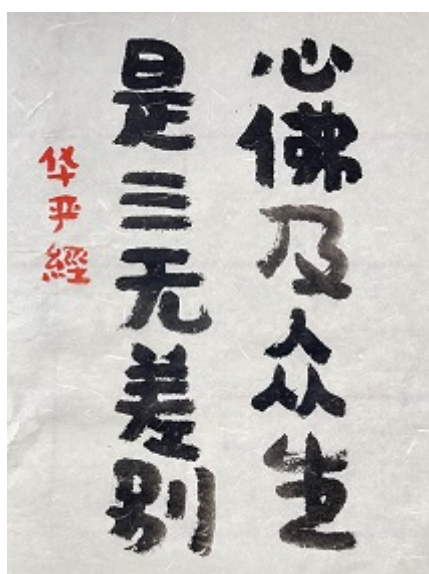 心佛及众生
是三无差别
华严經